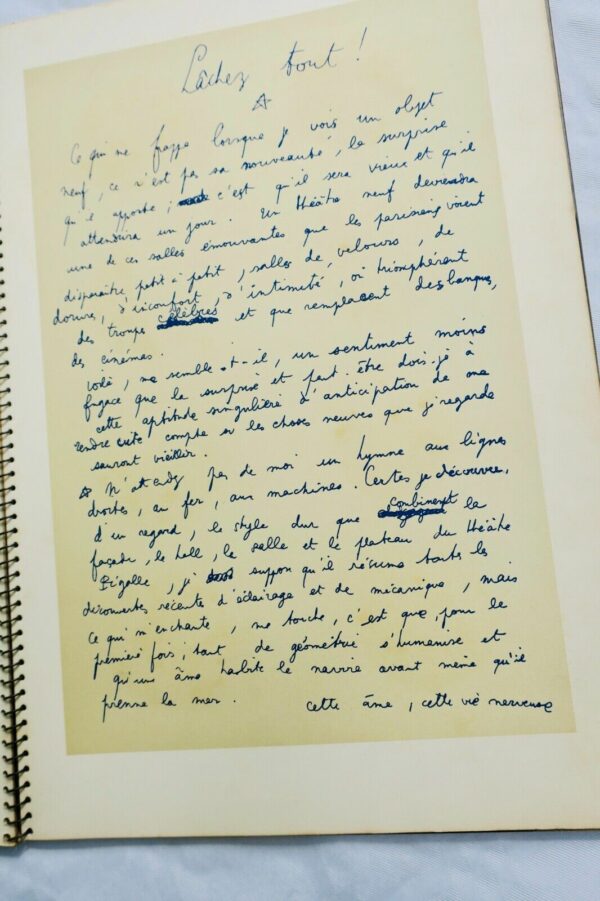 Lâchez tout !
Ce qui me frappe lorsque je vois un objet
neuf, ce n'est pas sa nouveauté, la surprise
qu'il apporte, c'est qu'il sera vieux et qu'il
attendrira un jour. Un théâtre neuf deviendra
une de ces salles émouvantes que les parisiens voient
disparaître petit à petit, salles de velours, de
dorures, d'inconfort, d'intimité, où triomphèrent
des troupes célèbres et que remplacent des banques,
des cinémas.
Voilà, me semble-t-il, un sentiment moins
fugace que la surprise et peut-être dois-je à
cette aptitude singulière d'anticipation de me
rendre compte si les choses neuves que je regarde
sauront vieillir.
N'attendez pas de moi un hymne aux lignes
droites, au fer, aux machines. Certes je découvre,
d'un regard, le style dur que combinent la
façade, le hall, la salle et le plateau du théâtre
Pigalle, je suppose qu'il résume toutes les
découvertes récentes d'éclairage et de mécanique, mais
ce qui m'enchante, me touche, c'est que, pour la
première fois, tant de géométrie s'humanise et
qu'une âme habite le navire avant même qu'il
prenne la mer. Cette âme, cette vie nerveuse